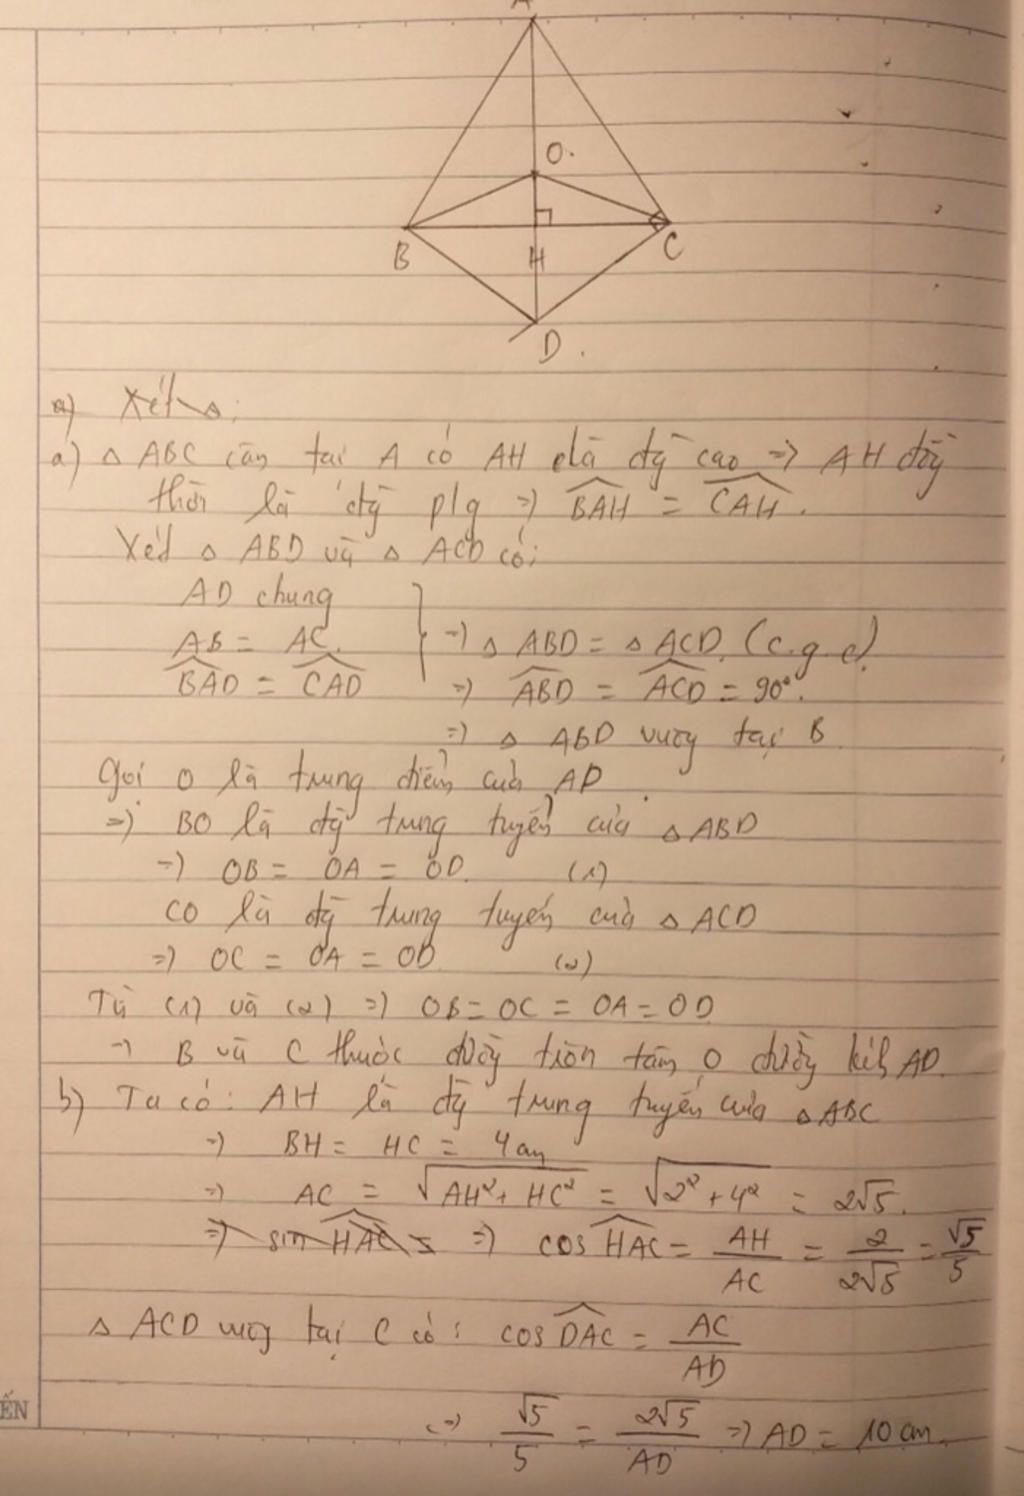 A
O.
B
H
C
D.
a) Xét △:
a) △ ABC cân tại A có AH là đg cao => AH đồg
thời là đg plg => BAH = CAH.
Xét △ ABD và △ ACD có:
AD chung
AB = AC.
BAD = CAD
=> △ ABD = △ ACD. (c.g.c)
=> ABD = ACD = 90°.
=> △ ABD vuog tại B
Gọi O là trung điểm của AD
=> BO là đg trung tuyến của △ ABD
=> OB = OA = OD (1)
CO là đg trung tuyến của △ ACD
=> OC = OA = OD (2)
Từ (1) và (2) => OB = OC = OA = OD
=> B và C thuộc đườg tròn tâm O đườg kíh AD.
b) Ta có: AH là đg trung tuyến của △ ABC
=> BH = HC = 4cm
=> AC = √AH² + HC² = √2² + 4² = 2√5.
=> sin HAC = => cos HAC = AH/AC = 2/2√5 = √5/5
△ ACD vuog tại C có: cos DAC = AC/AD
<=> √5/5 = 2√5/AD => AD = 10 cm.
ẾN